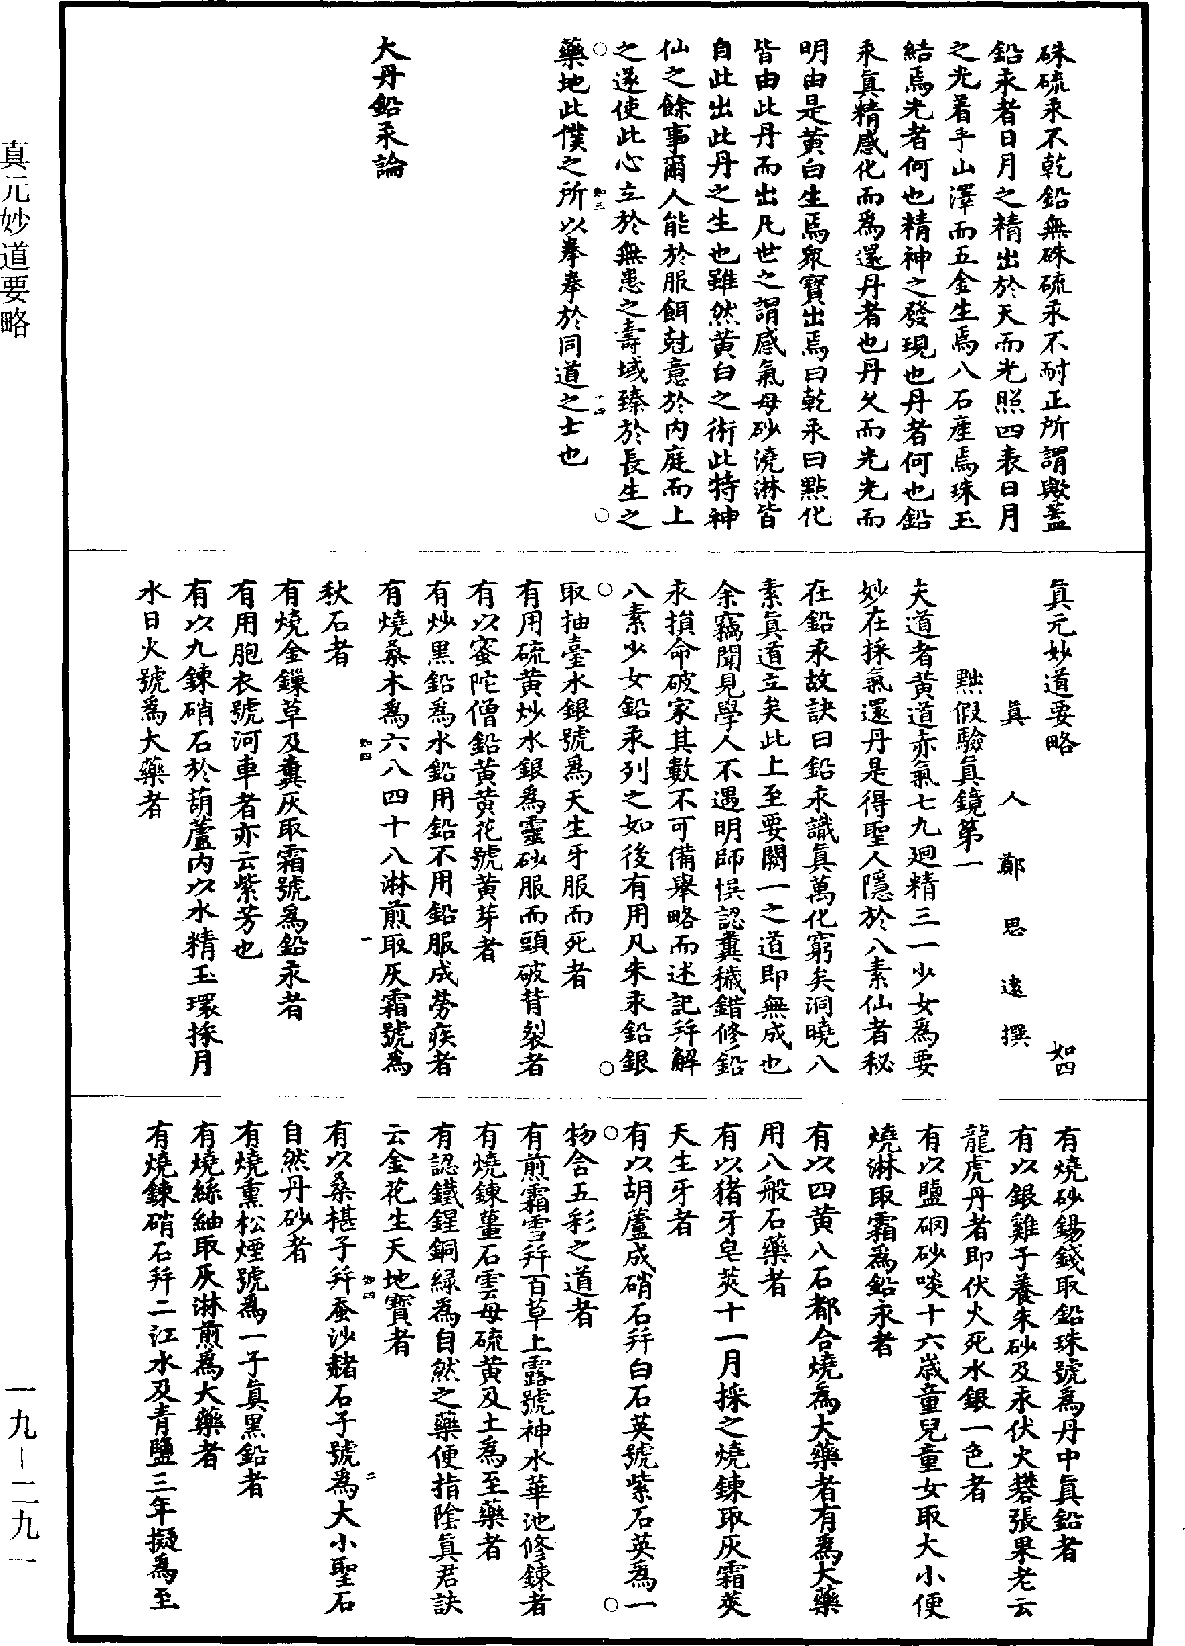 硃硫汞不乾鉛無硃硫汞不耐正所謂歟蓋
鉛汞者日月之精出於天而光照四表日月
之光着乎山澤而五金生焉八石產焉珠玉
結焉光者何也精神之發現也丹者何也鉛
汞真精感化而爲還丹者也丹久而光光而
明由是黃白生焉衆寶出焉曰乾汞曰點化
皆由此丹而出凡世之謂感氣母砂澆淋皆
自此出此丹之生也雖然黃白之術此特神
仙之餘事爾人能於服餌尅意於內庭而上
之遂使此心立於無患之壽域臻於長生之
藥地此僕之所以拳拳於同道之士也
如三
十四
大丹鉛汞論
真元妙道要略
如四
真人鄭思遠撰
黜假驗真鏡第一
夫道者黃道亦氣七九廻精三一少女爲要
妙在採氣還丹是得聖人隱於八素仙者秘
在鉛汞故訣曰鉛汞識真萬化窮矣洞曉八
素真道立矣此上至要闕一之道即無成也
余竊聞見學人不遇明師悞認糞穢錯修鉛
汞損命破家其數不可備舉略而述記并解
八素少女鉛汞列之如後有用凡朱汞鉛銀
取抽臺水銀號爲天生牙服而死者
有用硫黃炒水銀爲靈砂服而頭破背裂者
有以蜜陀僧鉛黃黃花號黃芽者
有炒黑鉛爲水鉛用鉛不用鉛服成勞疾者
有燒桑木爲六八四十八淋煎取灰霜號爲
如四
一
秋石者
有燒金鏁草及糞灰取霜號爲鉛汞者
有用胞衣號河車者亦云紫芳也
有以九鍊硝石於葫蘆內以水精玉環採月
水日火號爲大藥者
有燒砂錫錢取鉛珠號爲丹中真鉛者
有以銀雞子養朱砂及汞伏火礬張果老云
龍虎丹者即伏火死水銀一色者
有以鹽硇砂啖十六歲童兒童女取大小便
燒淋取霜爲鉛汞者
有以四黃八石都合燒爲大藥者有爲大藥
用八般石藥者
有以猪牙皂莢十一月採之燒鍊取灰霜莢
天生牙者
有以胡蘆成硝石并白石英號紫石英爲一
物含五彩之道者
有煎霜雪并百草上露號神水華池修鍊者
有燒鍊薑石雲母硫黃及土爲至藥者
有認鐵鋥銅綠爲自然之藥便指陰真君訣
云金花生天地寶者
有以桑椹子并蚕沙赭石子號爲大小聖石
如四
二
自然丹砂者
有燒熏松煙號爲一子真黑鉛者
有燒絲紬取灰淋煎爲大藥者
有燒鍊硝石并二江水及青鹽三年擬爲至
真元妙道要略
一九—二九一